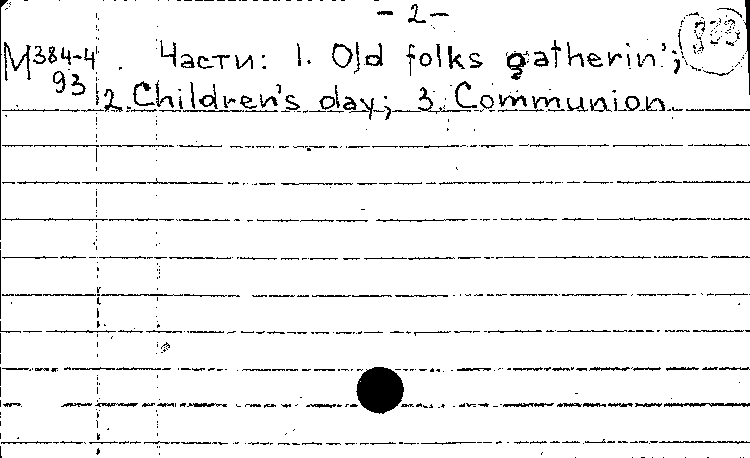 - 2 -
М 384-4 . Части: 1. Old folks gatherin';
93 2. Children's day; 3. Communion.